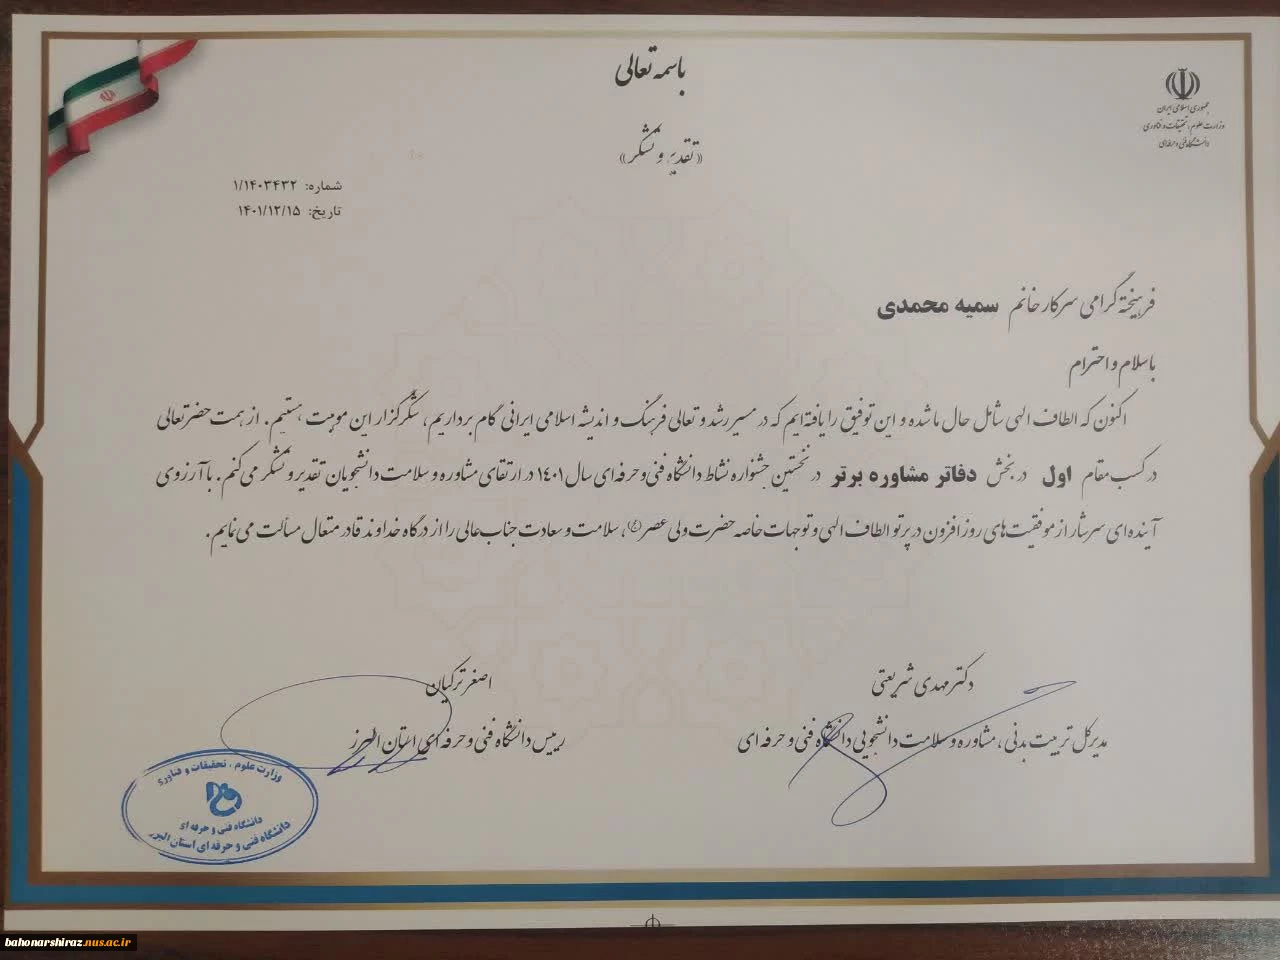 باسمه تعالی
جمهوری اسلامی ایران
وزارت علوم، تحقیقات و فناوری
دانشگاه فنی و حرفه‌ای
«تقدیر و تشکر»
شماره: ۱/۱۴۰۳۴۳۲
تاریخ: ۱۴۰۱/۱۲/۱۵
فرهیخته گرامی سرکار خانم سمیه محمدی
با سلام و احترام
اکنون که الطاف الهی شامل حال ما شده و این توفیق را یافته‌ایم که در مسیر رشد و تعالی فرهنگ و اندیشه اسلامی ایرانی گام برداریم، شکرگزار این موهبت هستیم. از همت حضرتعالی
در کسب مقام اول در بخش دفاتر مشاوره برتر در نخستین جشنواره نشاط دانشگاه فنی و حرفه‌ای سال ۱۴۰۱ در ارتقای مشاوره و سلامت دانشجویان تقدیر و تشکر می‌کنم. با آرزوی
آینده‌ای سرشار از موفقیت‌های روزافزون در پرتو الطاف الهی و توجهات خاصه حضرت ولی عصر(عج)، سلامت و سعادت جناب عالی را از درگاه خداوند قادر متعال مسألت می‌نمایم.
دکتر مهدی شریعتی
مدیرکل تربیت بدنی، مشاوره و سلامت دانشجویی دانشگاه فنی و حرفه ای
اصغر ترکیان
رییس دانشگاه فنی و حرفه ای استان البرز
وزارت علوم، تحقیقات و فناوری
دانشگاه فنی و حرفه ای
دانشگاه فنی و حرفه ای استان البرز
bahonarshiraz.nus.ac.ir